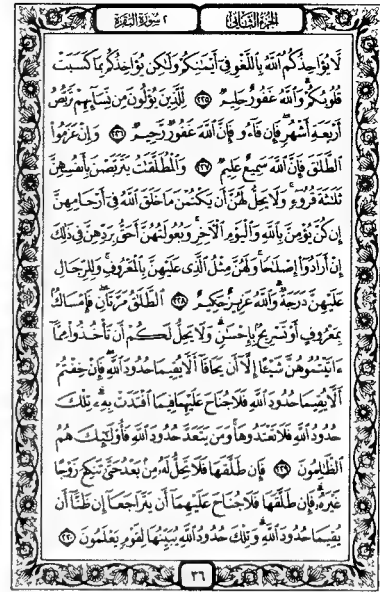 الجزء الثاني ٢ سورة البقرة
لَّا يُؤَاخِذُكُمُ ٱللَّهُ بِٱللَّغْوِ فِىٓ أَيْمَـٰنِكُمْ وَلَـٰكِن يُؤَاخِذُكُم بِمَا كَسَبَتْ
قُلُوبُكُمْ ۗ وَٱللَّهُ غَفُورٌ حَلِيمٌ ٢٢٥ لِّلَّذِينَ يُؤْلُونَ مِن نِّسَآئِهِمْ تَرَبُّصُ
أَرْبَعَةِ أَشْهُرٍ ۖ فَإِن فَآءُو فَإِنَّ ٱللَّهَ غَفُورٌ رَّحِيمٌ ٢٢٦ وَإِنْ عَزَمُوا۟
ٱلطَّلَـٰقَ فَإِنَّ ٱللَّهَ سَمِيعٌ عَلِيمٌ ٢٢٧ وَٱلْمُطَلَّقَـٰتُ يَتَرَبَّصْنَ بِأَنفُسِهِنَّ
ثَلَـٰثَةَ قُرُوٓءٍ ۚ وَلَا يَحِلُّ لَهُنَّ أَن يَكْتُمْنَ مَا خَلَقَ ٱللَّهُ فِىٓ أَرْحَامِهِنَّ
إِن كُنَّ يُؤْمِنَّ بِٱللَّهِ وَٱلْيَوْمِ ٱلْـَٔاخِرِ ۚ وَبُعُولَتُهُنَّ أَحَقُّ بِرَدِّهِنَّ فِى ذَٰلِكَ
إِنْ أَرَادُوٓا۟ إِصْلَـٰحًا ۚ وَلَهُنَّ مِثْلُ ٱلَّذِى عَلَيْهِنَّ بِٱلْمَعْرُوفِ ۚ وَلِلرِّجَالِ
عَلَيْهِنَّ دَرَجَةٌ ۗ وَٱللَّهُ عَزِيزٌ حَكِيمٌ ٢٢٨ ٱلطَّلَـٰقُ مَرَّتَانِ ۖ فَإِمْسَاكٌۢ
بِمَعْرُوفٍ أَوْ تَسْرِيحٌۢ بِإِحْسَـٰنٍ ۗ وَلَا يَحِلُّ لَكُمْ أَن تَأْخُذُوا۟ مِمَّآ
ءَاتَيْتُمُوهُنَّ شَيْـًٔا إِلَّآ أَن يَخَافَآ أَلَّا يُقِيمَا حُدُودَ ٱللَّهِ ۖ فَإِنْ خِفْتُمْ
أَلَّا يُقِيمَا حُدُودَ ٱللَّهِ فَلَا جُنَاحَ عَلَيْهِمَا فِيمَا ٱفْتَدَتْ بِهِۦ ۗ تِلْكَ
حُدُودُ ٱللَّهِ فَلَا تَعْتَدُوهَا ۚ وَمَن يَتَعَدَّ حُدُودَ ٱللَّهِ فَأُو۟لَـٰٓئِكَ هُمُ
ٱلظَّـٰلِمُونَ ٢٢٩ فَإِن طَلَّقَهَا فَلَا تَحِلُّ لَهُۥ مِنۢ بَعْدُ حَتَّىٰ تَنكِحَ زَوْجًا
غَيْرَهُۥ ۗ فَإِن طَلَّقَهَا فَلَا جُنَاحَ عَلَيْهِمَآ أَن يَتَرَاجَعَآ إِن ظَنَّآ أَن
يُقِيمَا حُدُودَ ٱللَّهِ ۗ وَتِلْكَ حُدُودُ ٱللَّهِ يُبَيِّنُهَا لِقَوْمٍ يَعْلَمُونَ ٢٣٠
٣٦